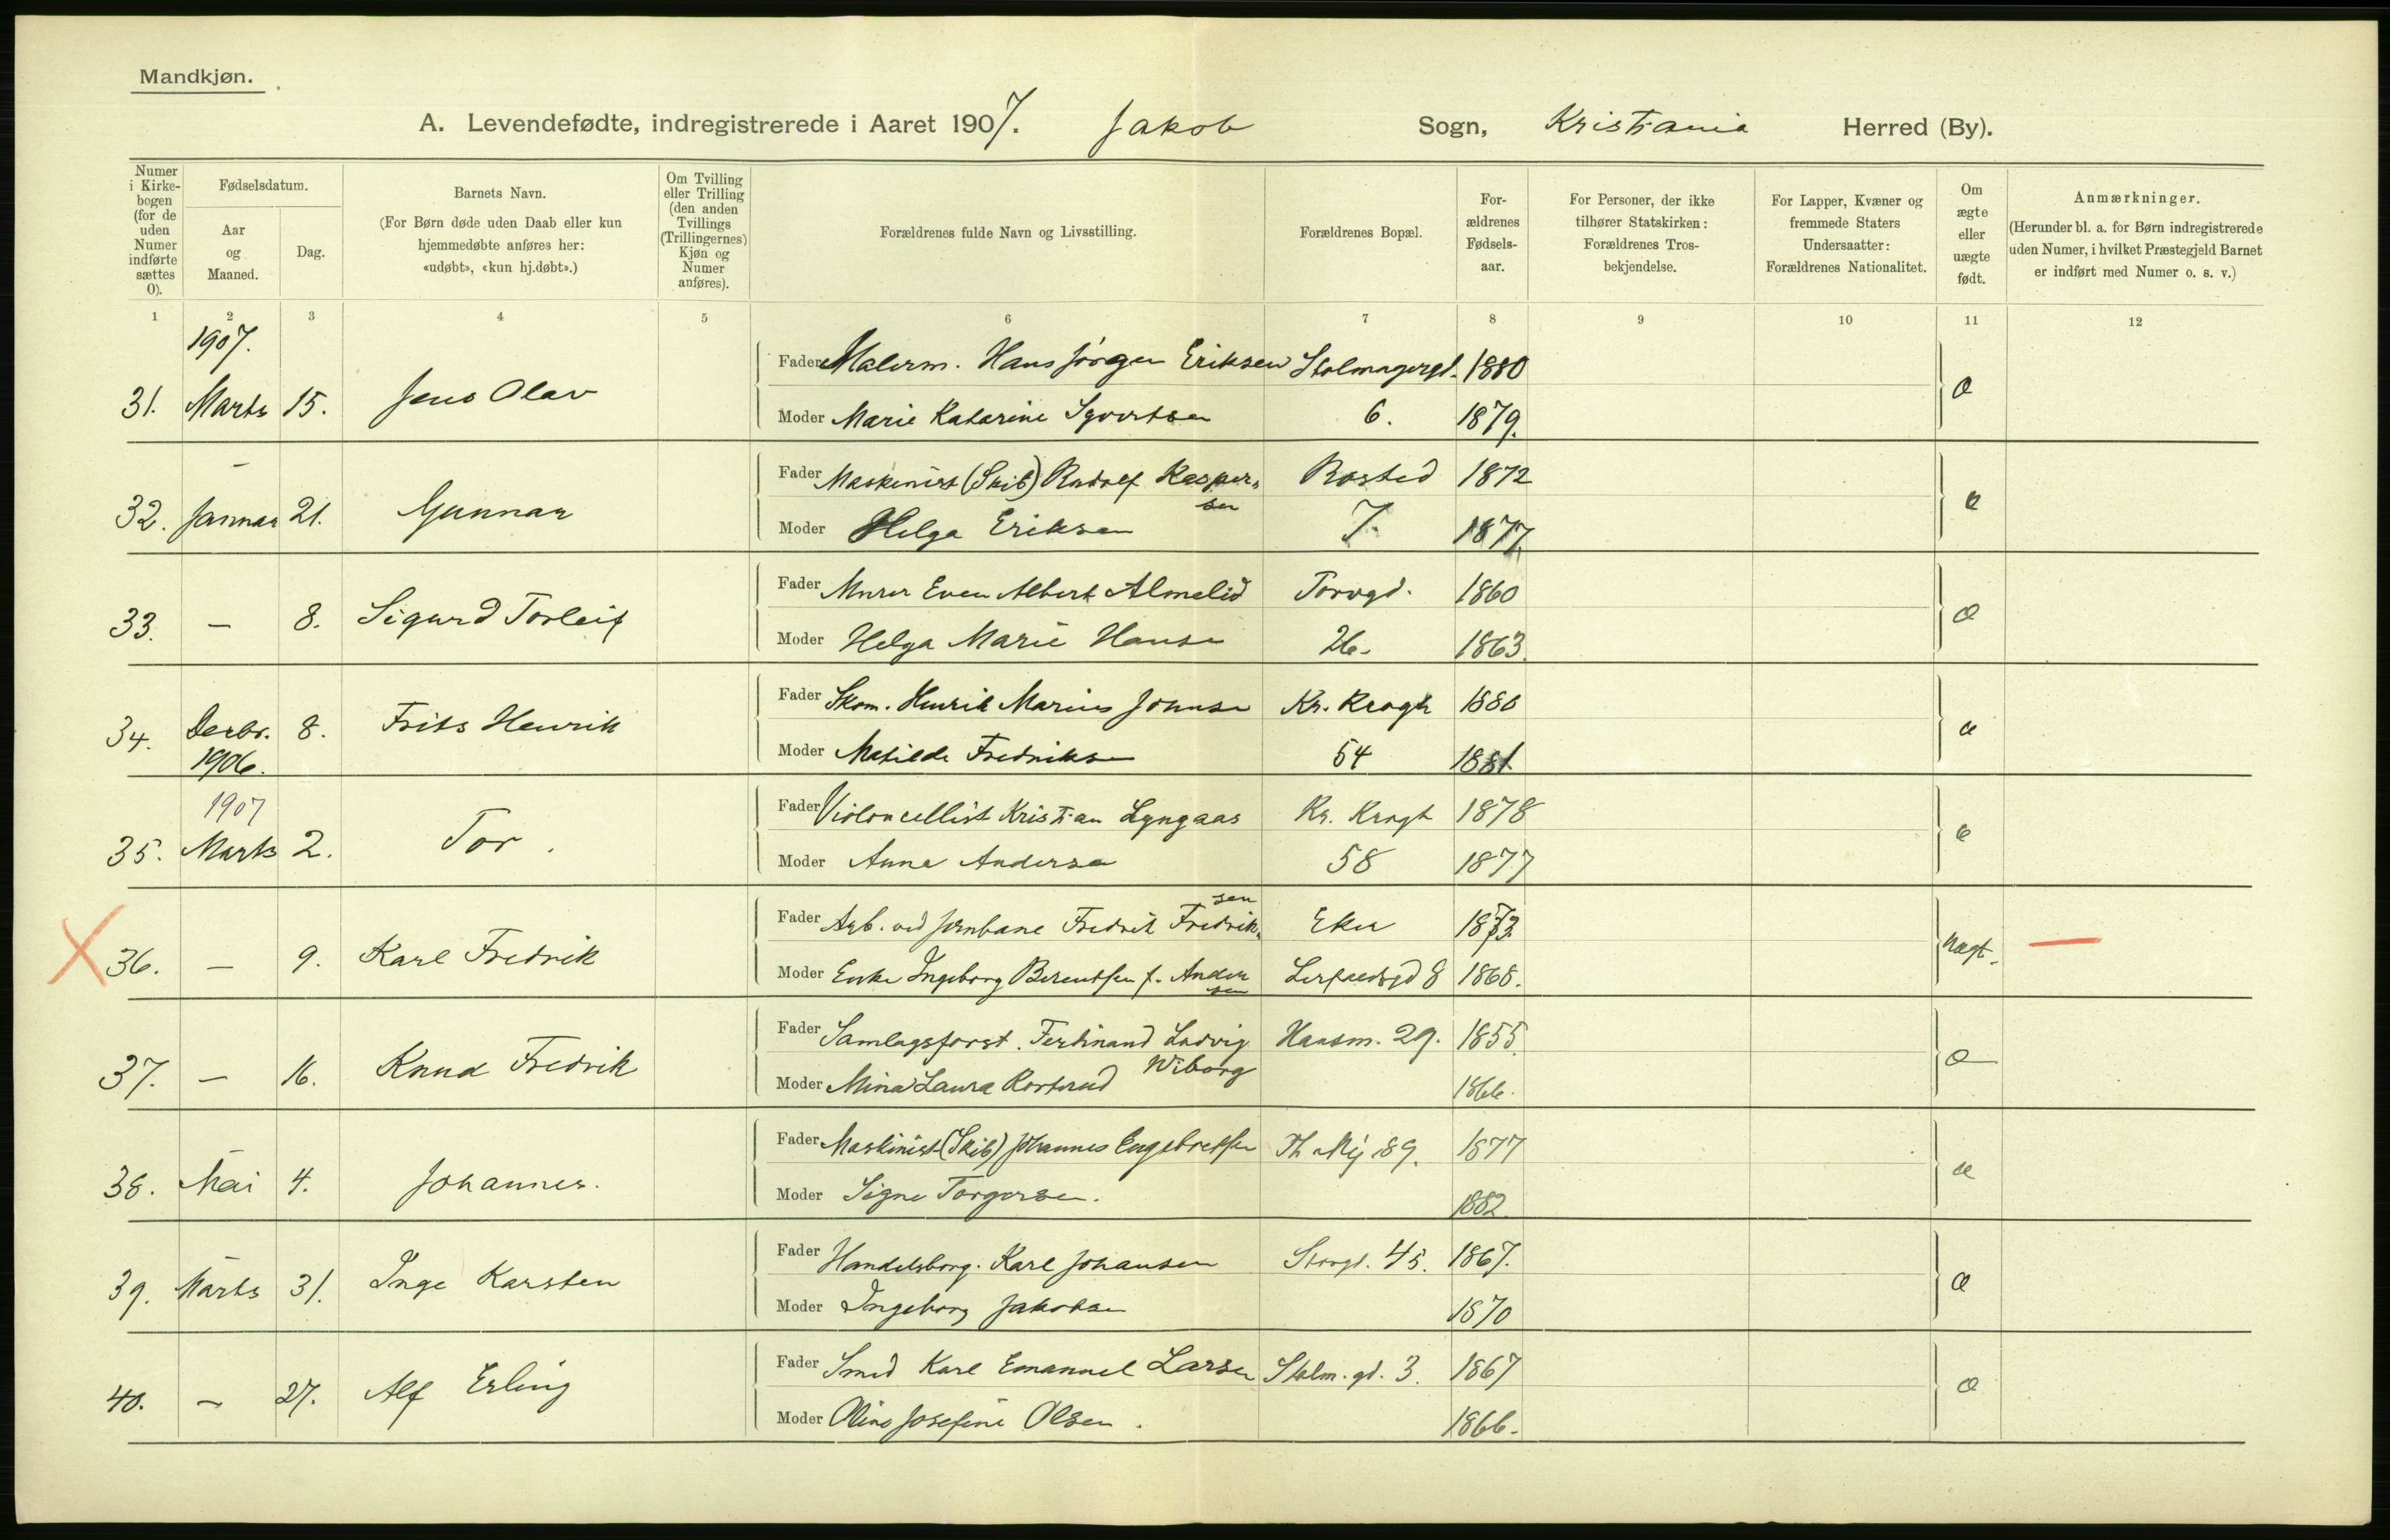 Mandkjøn.
A. Levendefødte, indregistrerede i Aaret 1907. Jakob Sogn, Kristiania Herred (By).
Numer i Kirkebogen (for de uden Numer indførte sættes 0).
Fødselsdatum.
Aar og Maaned.
Dag.
Barnets Navn.
(For Børn døde uden Daab eller kun hjemmedøbte anføres her: «udøbt», «kun hj.døbt».)
Om Tvilling eller Trilling (den anden Tvillings (Trillingernes) Kjøn og Numer anføres).
Forældrenes fulde Navn og Livsstilling.
Forældrenes Bopæl.
Forældrenes Fødselsaar.
For Personer, der ikke tilhører Statskirken: Forældrenes Trosbekjendelse.
For Lapper, Kvæner og fremmede Staters Undersaatter: Forældrenes Nationalitet.
Om ægte eller uægte født.
Anmærkninger.
(Herunder bl. a. for Børn indregistrerede uden Numer, i hvilket Præstegjeld Barnet er indført med Numer o. s. v.)
1 2 3 4 5 6 7 8 9 10 11 12
1907.
31. Marts 15. Jens Olav Fader Malerm. Hans Jörgen Eriksen Stolmagergd. 1880 æ
Moder Marie Katarine 6. 1879.
32. Januar 21. Gunnar Fader Maskinist (Skib) Rudolf Kaspersen Rosted 1872 æ
Moder Helga Eriksen 7. 1877.
33. — 8. Sigurd Torleif Fader Murer Even Albert Almelid Torvgd. 1860 æ
Moder Helga Marie Hansen 26. 1863.
34. Decbr. 1906. 8. Frits Henrik Fader Skom. Henrik Marius Johnsen Kr. Krogh 1880 æ
Moder Matilde Fredriksen 54 1881.
1907
35. Marts 2. Tor. Fader Violoncellist Kristian Lyngaas Kr. Krogh 1878 æ
Moder Anna Andersen 58 1877
36. — 9. Karl Fredrik Fader Arb. ved Jernbane Fredrik Fredriksen Eker 1873. uægt. —
Moder Enke Ingeborg Berentsen f. Andersen Lerfaldsgd 8 1868.
37. — 16. Knud Fredrik Fader Samlagsforst. Ferdinand Ludvig Wiborg Hausm. 29. 1855. æ
Moder Mina Laura 1866.
38. Mai 4. Johannes. Fader Maskinist (Skib) Johannes Engebretsen Th. Mej. 89. 1877 æ
Moder Signe Torgersen. 1882.
39. Marts 31. Inge Karsten Fader Handelsborg. Karl Johansen Storgd. 45. 1867. æ
Moder Ingeborg Jakobsen 1870
40. — 27. Alf Erling Fader Smed Karl Emanuel Larsen Stolm.gd. 3. 1867 æ
Moder Oline Josefine Olsen. 1866.